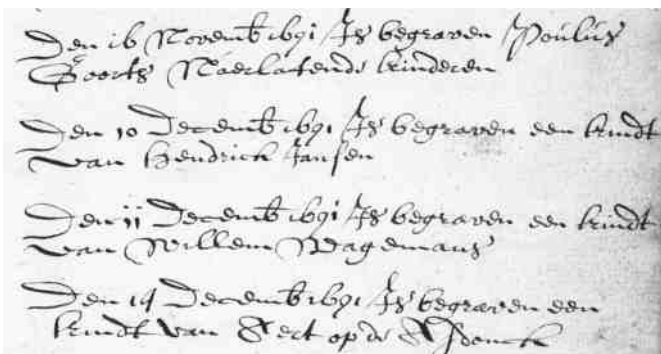 Den 16 Novemb 1691 Is begraven Poulus
Goorts Naerlatende kinderen
Den 10 Decemb 1691 Is begraven een kindt
van Hendrick Jansen
Den 11 Decemb 1691 Is begraven een kindt
van Willem Wagemans
Den 14 Decemb 1691 Is begraven een
kindt van Aert op de